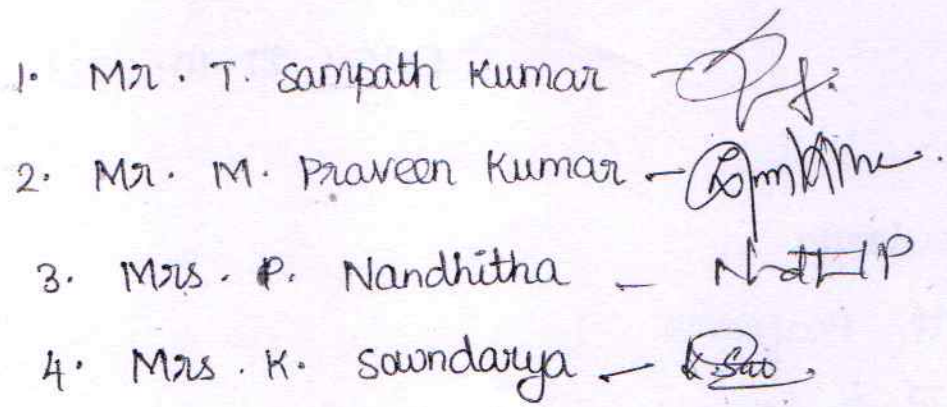 1. Mr. T. Sampath Kumar -
2. Mr. M. Praveen Kumar -
3. Mrs. P. Nandhitha -
4. Mrs. K. Soundarya -